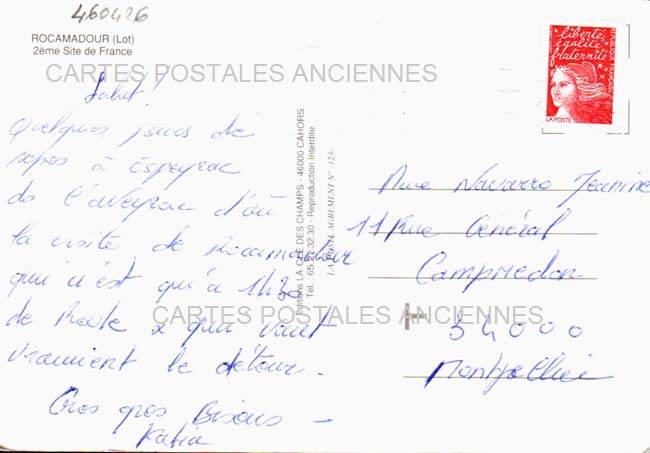 460426
ROCAMADOUR (Lot)
2ème Site de France
CARTES POSTALES ANCIENNES
Salut!
Quelques jours de
repos à Espeyrac
ds l'aveyrac d'où
la visite de Rocamadour
qui n'est qu'à 1h30
de Route & qui vaut
vraiment le détour.
Gros gros Bisous -
Katia
Editions LA CLE DES CHAMPS - 46000 CAHORS
Tél.: 65.22.32.30 - Reproduction Interdite
LA POSTE AGREMENT N° 123
liberté
égalité
fraternité
RÉPUBLIQUE FRANÇAISE
LA POSTE
Mme Navarro Jeanine
11 Rue Général
Campredon
34000
Montpellier
CARTES POSTALES ANCIENNES